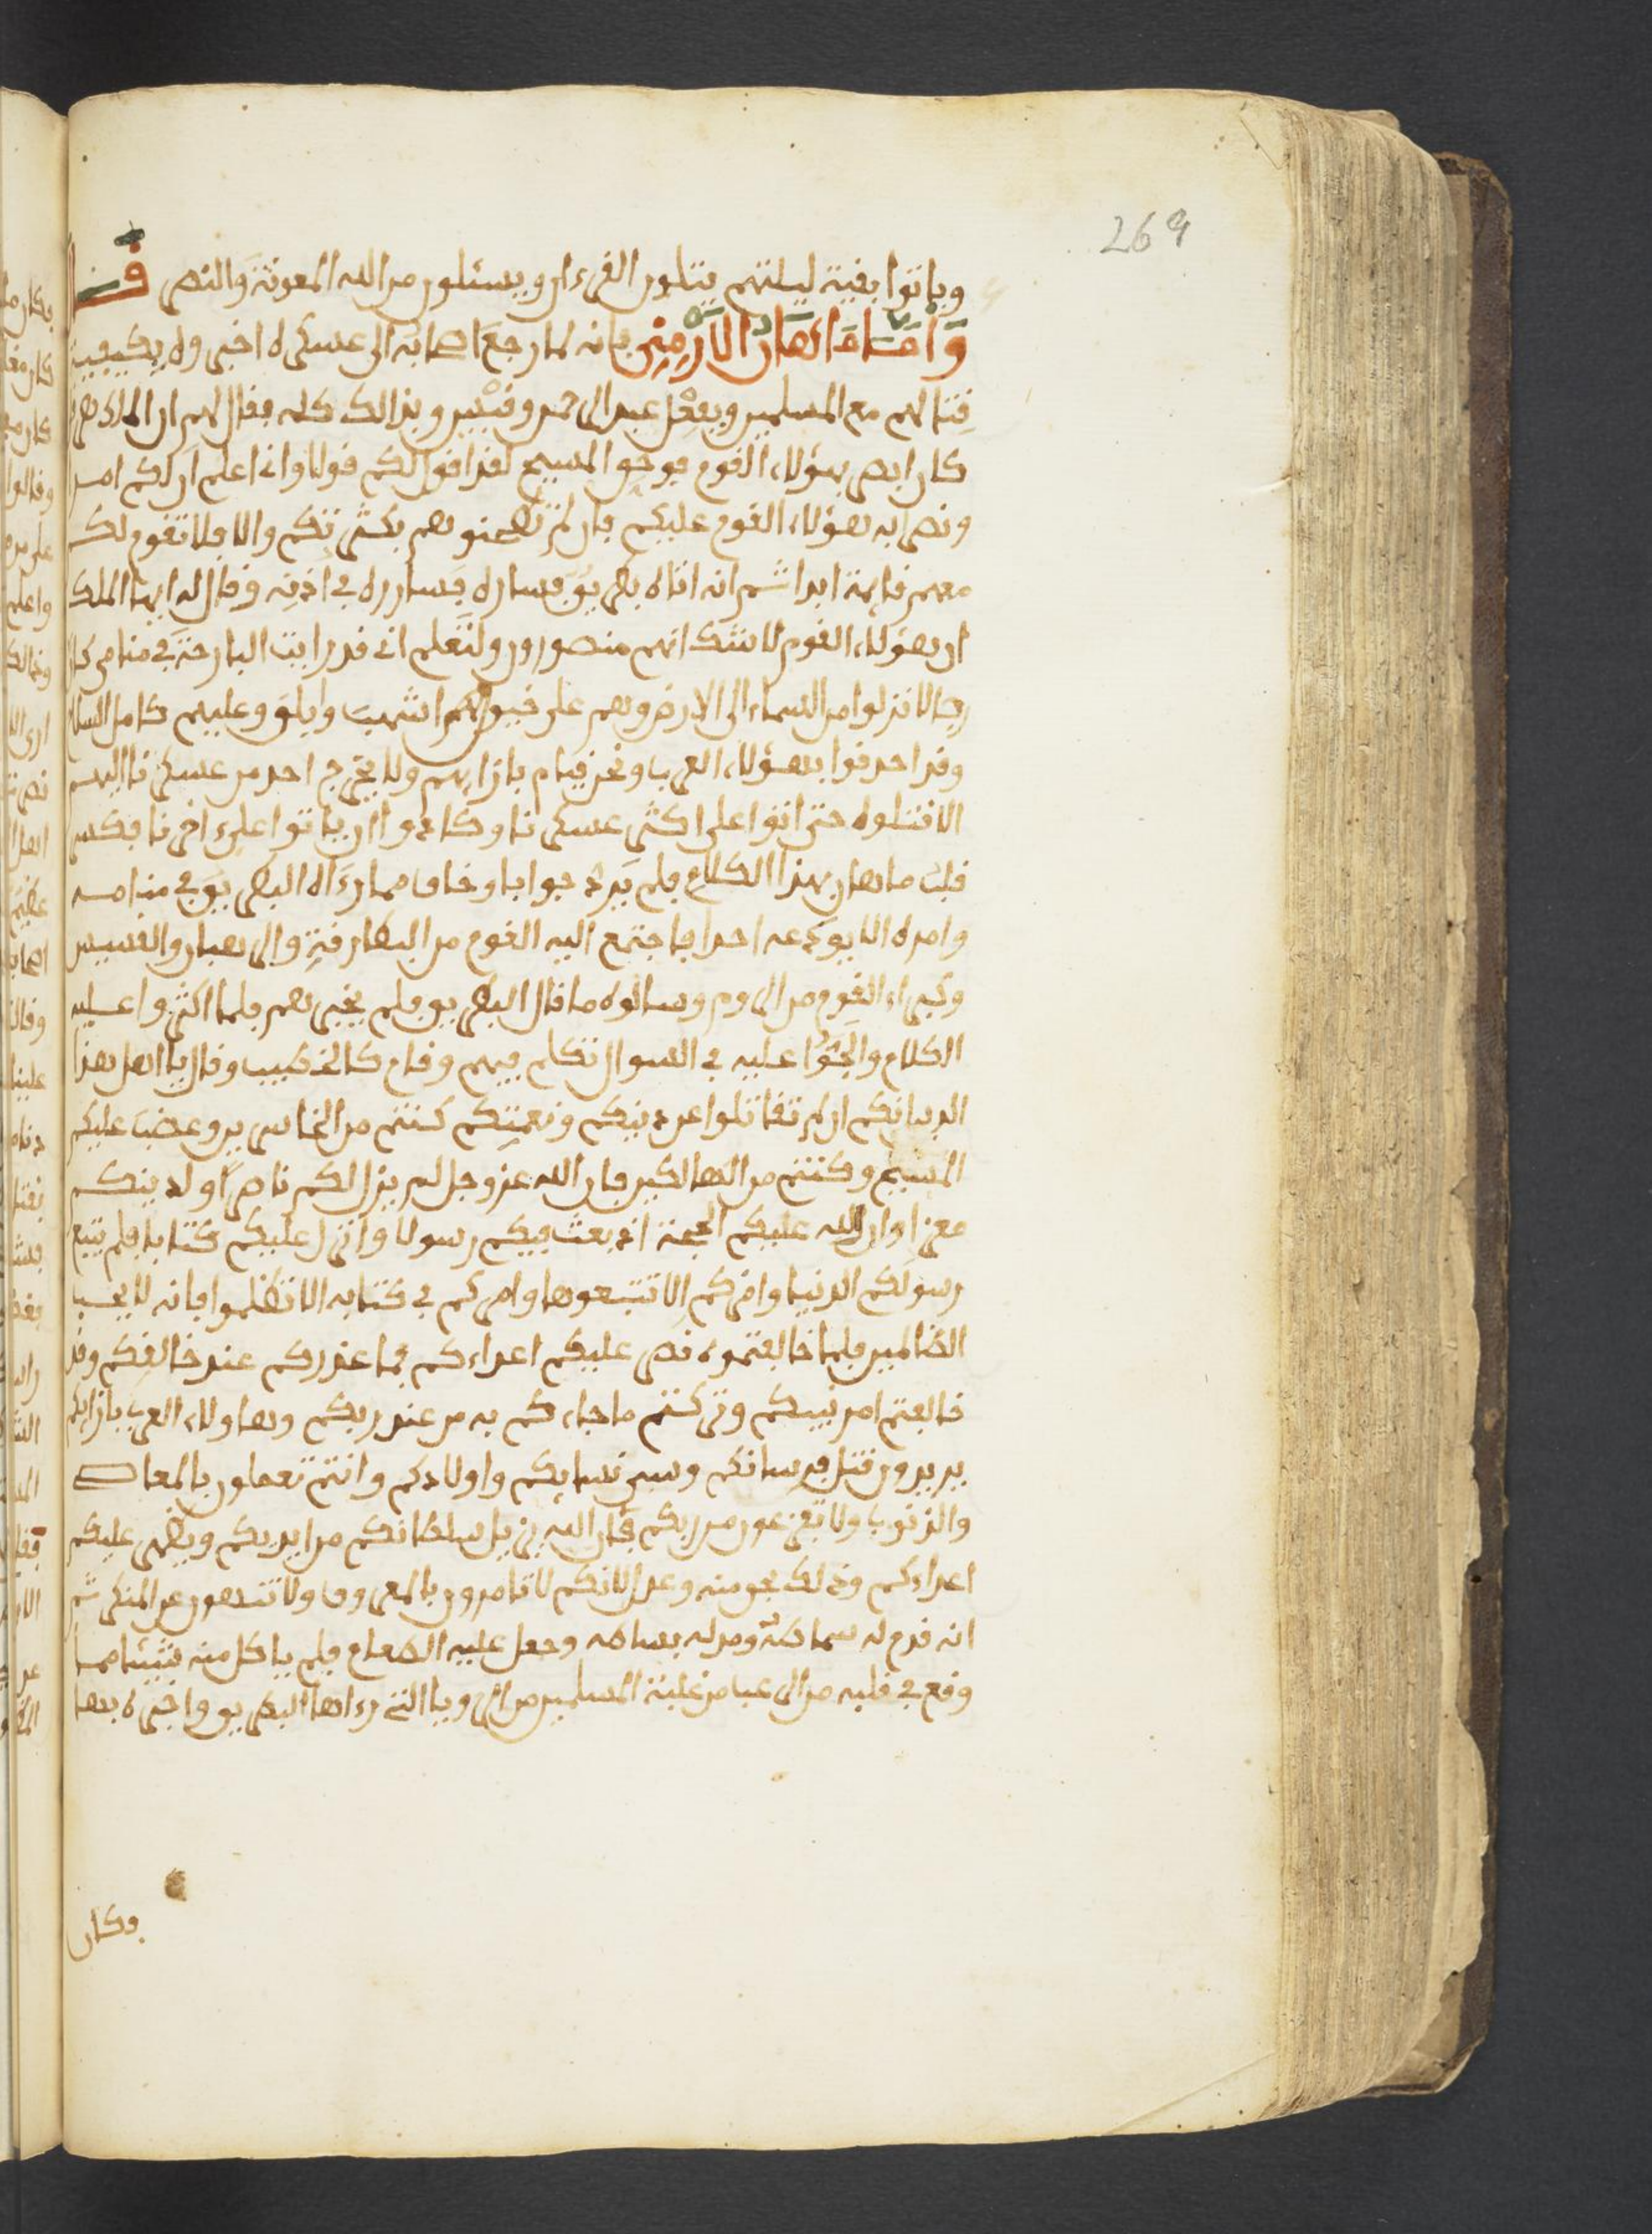 269
وباتوا بقية ليلتهم يتلون القرءان ويسئلون من الله المعونة والنصر قال
واما ماهان الارمني فانه لما رجع اصحابه الى عسكره اخبروه بكيفية
قتالهم مع المسلمين وبفعل عبد الرحمن وقيس وبذالك كله فقال لهم ان الملك هرقل
كان ابصر بهؤلاء القوم فوحق المسيح لقد اقول لكم قولا وانا اعلم ان لكم امدا
ونصرا به هؤلاء القوم عليكم فان لم تطحنوهم بكثرتكم والا فلا تقوم لكم
معهم قايمة ابدا ثم انه اتاه بطريق فساره فسارره في اذنه وقال له ايها الملك
ان هؤلاء القوم لا شك انهم منصورون ولتعلم اني قد رايت البارحة في منامي كان
رجالا نزلوا من السماء الى الارض وهم على خيولهم اشهب وابلق وعليهم كامل السلاح
وقد احدقوا بهؤلاء العرب ونحن قيام بازايهم ولا يخرج احد من عسكرنا اليهم
الا قتلوه حتى اتوا على اكثر عسكرنا وكادوا ان ياتوا على ءاخرنا فكسر
قلب ماهان بهذا الكلام فلم يرد جوابا وخاف مما رءاه البطريق في منامه
وامره الا يودعه احدا فاجتمع اليه القوم من البطارقة والرهبان والقسيس
وكبراء القوم من الروم وسالوه ما قال البطريق فلم يخبرهم فلما اكثروا عليه
الكلام والحوا عليه في السوال تكلم فيهم وقام كالخطيب وقال يا اهل هذا
الدين انكم ان لم تقاتلوا عن دينكم ونعمتكم كنتم من الخاسرين وغضب عليكم
المسيح وكنتم من الهالكين فان الله عز وجل لم يزل لكم ناصرا ولدينكم
معزا وان لله عليكم الحجة اذ بعث فيكم رسولا وانزل عليكم كتابا فلم يتبع
رسولكم الدنيا وامركم الا تتبعوها وامركم في كتابه الا تظلموا فانه لا يحب
الظالمين فلما خالفتموه نصر عليكم اعداءكم فما عذركم عند خالقكم وقد
خالفتم امر نبيكم وتركتم ما جاءكم به من عند ربكم وهاولاء العرب بازايكم
يريدون قتل فرسانكم وسبي نسايكم واولادكم وانتم تعملون بالمعاصي
والذنوب ولا تفزعون من ربكم فان الله يزيل سلطانكم من ايديكم ويظهر عليكم
اعداءكم وذلك بحق منه وعدل لانكم لا تامرون بالمعروف ولا تنتهون عن المنكر ثم
انه قدم له سماطه ومد له بساطه وجعل عليه الطعام فلم ياكل منه شيئا مما
وقع في قلبه من الرعب من غلبة المسلمين من الرويا التي رءاها البطريق واخبره بها
وكان